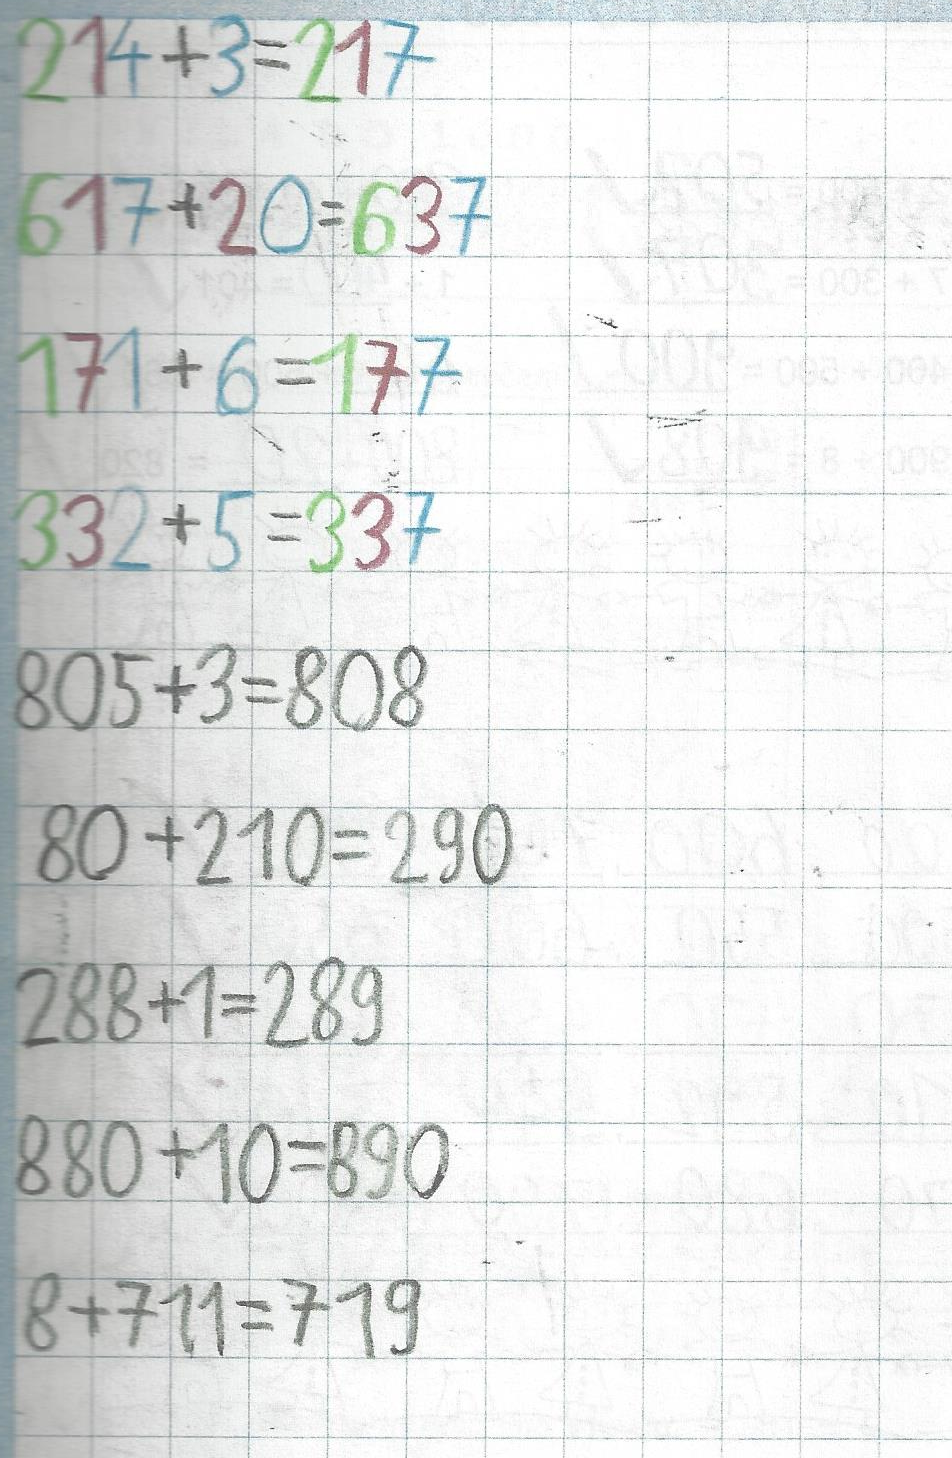 214+3=217
617+20=637
171+6=177
332+5=337
805+3=808
80+210=290
288+1=289
880+10=890
8+711=719